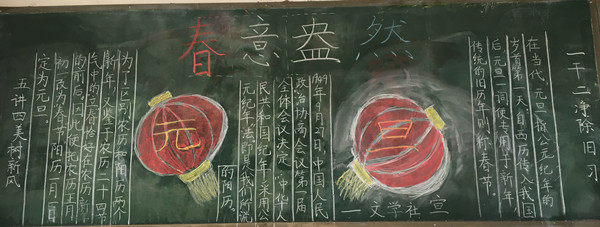 春意盎然
一干二净除旧习
在当代,元旦指公元纪年的
岁首第一天自西历传入我国
后,元旦一词便专用于新年,
传统的旧历年则称春节。
元旦
1949年9月27日,中国人民
政治协商会议第一届
全体会议决定:中华人
民共和国纪年采用公
元纪年法,即是我们所说
的阳历。
为了区别农历和阳历两个
新年,又鉴于农历二十四节
气中的立春恰好在农历新年
的前后,因此便把农历正月
初一改为春节,阳历一月一日
定为元旦。
五讲四美树新风
—文学社宣